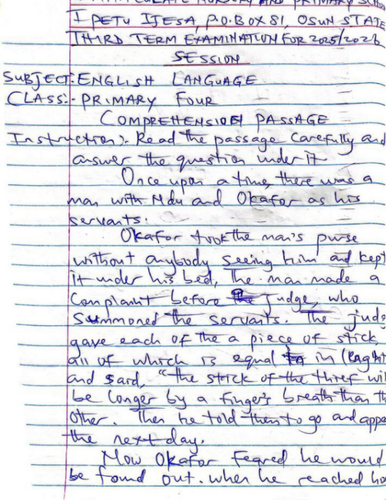 IMMACULATE NURSERY AND PRIMARY SCH
IPETU IJESA, P.O.BOX 81, OSUN STATE
THIRD TERM EXAMINATION FOR 2025/2026
SESSION
SUBJECT: ENGLISH LANGUAGE
CLASS:- PRIMARY FOUR
COMPREHENSION PASSAGE
Instruction:- Read the passage carefully and
answer the question under it
Once upon a time, there was a
man with Ndu and Okafor as his
servants.
Okafor took the man's purse
without anybody seeing him and kept
it under his bed, the man made a
complaint before the judge, who
summoned the servants. The jud
gave each of the a piece of stick
all of which is equal in lenght
and said, "the stick of the thief wil
be longer by a finger's breath than th
other. Then he told them to go and appe
the next day.
Now Okafor feared he would
be found out. when he reached ho